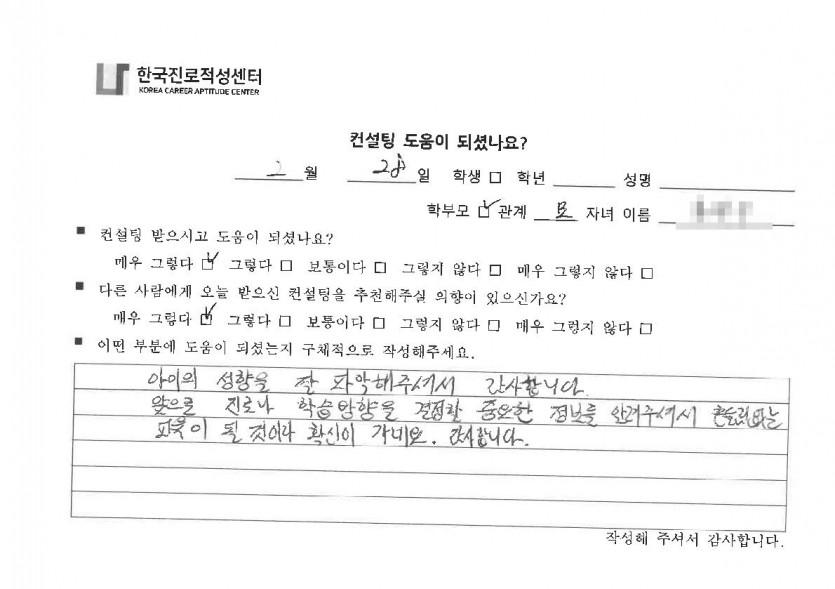 한국진로적성센터
KOREA CAREER APTITUDE CENTER
컨설팅 도움이 되셨나요?
2 월 28 일 학생 □ 학년 성명
학부모 ☑ 관계 모 자녀 이름
■ 컨설팅 받으시고 도움이 되셨나요?
매우 그렇다 ☑ 그렇다 □ 보통이다 □ 그렇지 않다 □ 매우 그렇지 않다 □
■ 다른 사람에게 오늘 받으신 컨설팅을 추천해주실 의향이 있으신가요?
매우 그렇다 ☑ 그렇다 □ 보통이다 □ 그렇지 않다 □ 매우 그렇지 않다 □
■ 어떤 부분에 도움이 되셨는지 구체적으로 작성해주세요.
아이의 성향을 잘 파악해주셔서 감사합니다.
앞으로 진로나 학습방향을 결정할 중요한 정보를 알려주셔서 흔들림없는
교육이 될 것이라 확신이 가네요. 감사합니다.
작성해 주셔서 감사합니다.